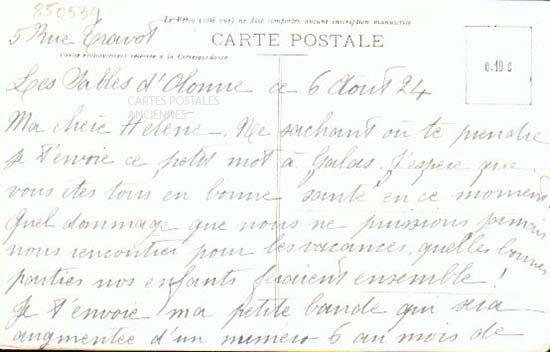 850534
Le Verso (côté vue) ne doit comporter aucune inscription manuscrite
5 Rue Travot
CARTE POSTALE
Partie exclusivement réservée à la Correspondance
0.10 €
Les Sables d'Olonne ce 6 Aout 24
CARTES POSTALES
ANCIENNES
Ma chère Hélène _ Ne sachant où te prendre
je t'envoie ce petit mot à Galas. J'espère que
vous êtes tous en bonne santé en ce moment
Quel dommage que nous ne puissions jamais
nous rencontrer pour les vacances, quelles bonnes
parties nos enfants feraient ensemble !
Je t'envoie ma petite bande qui sera
augmentée d'un numéro 6 au mois de